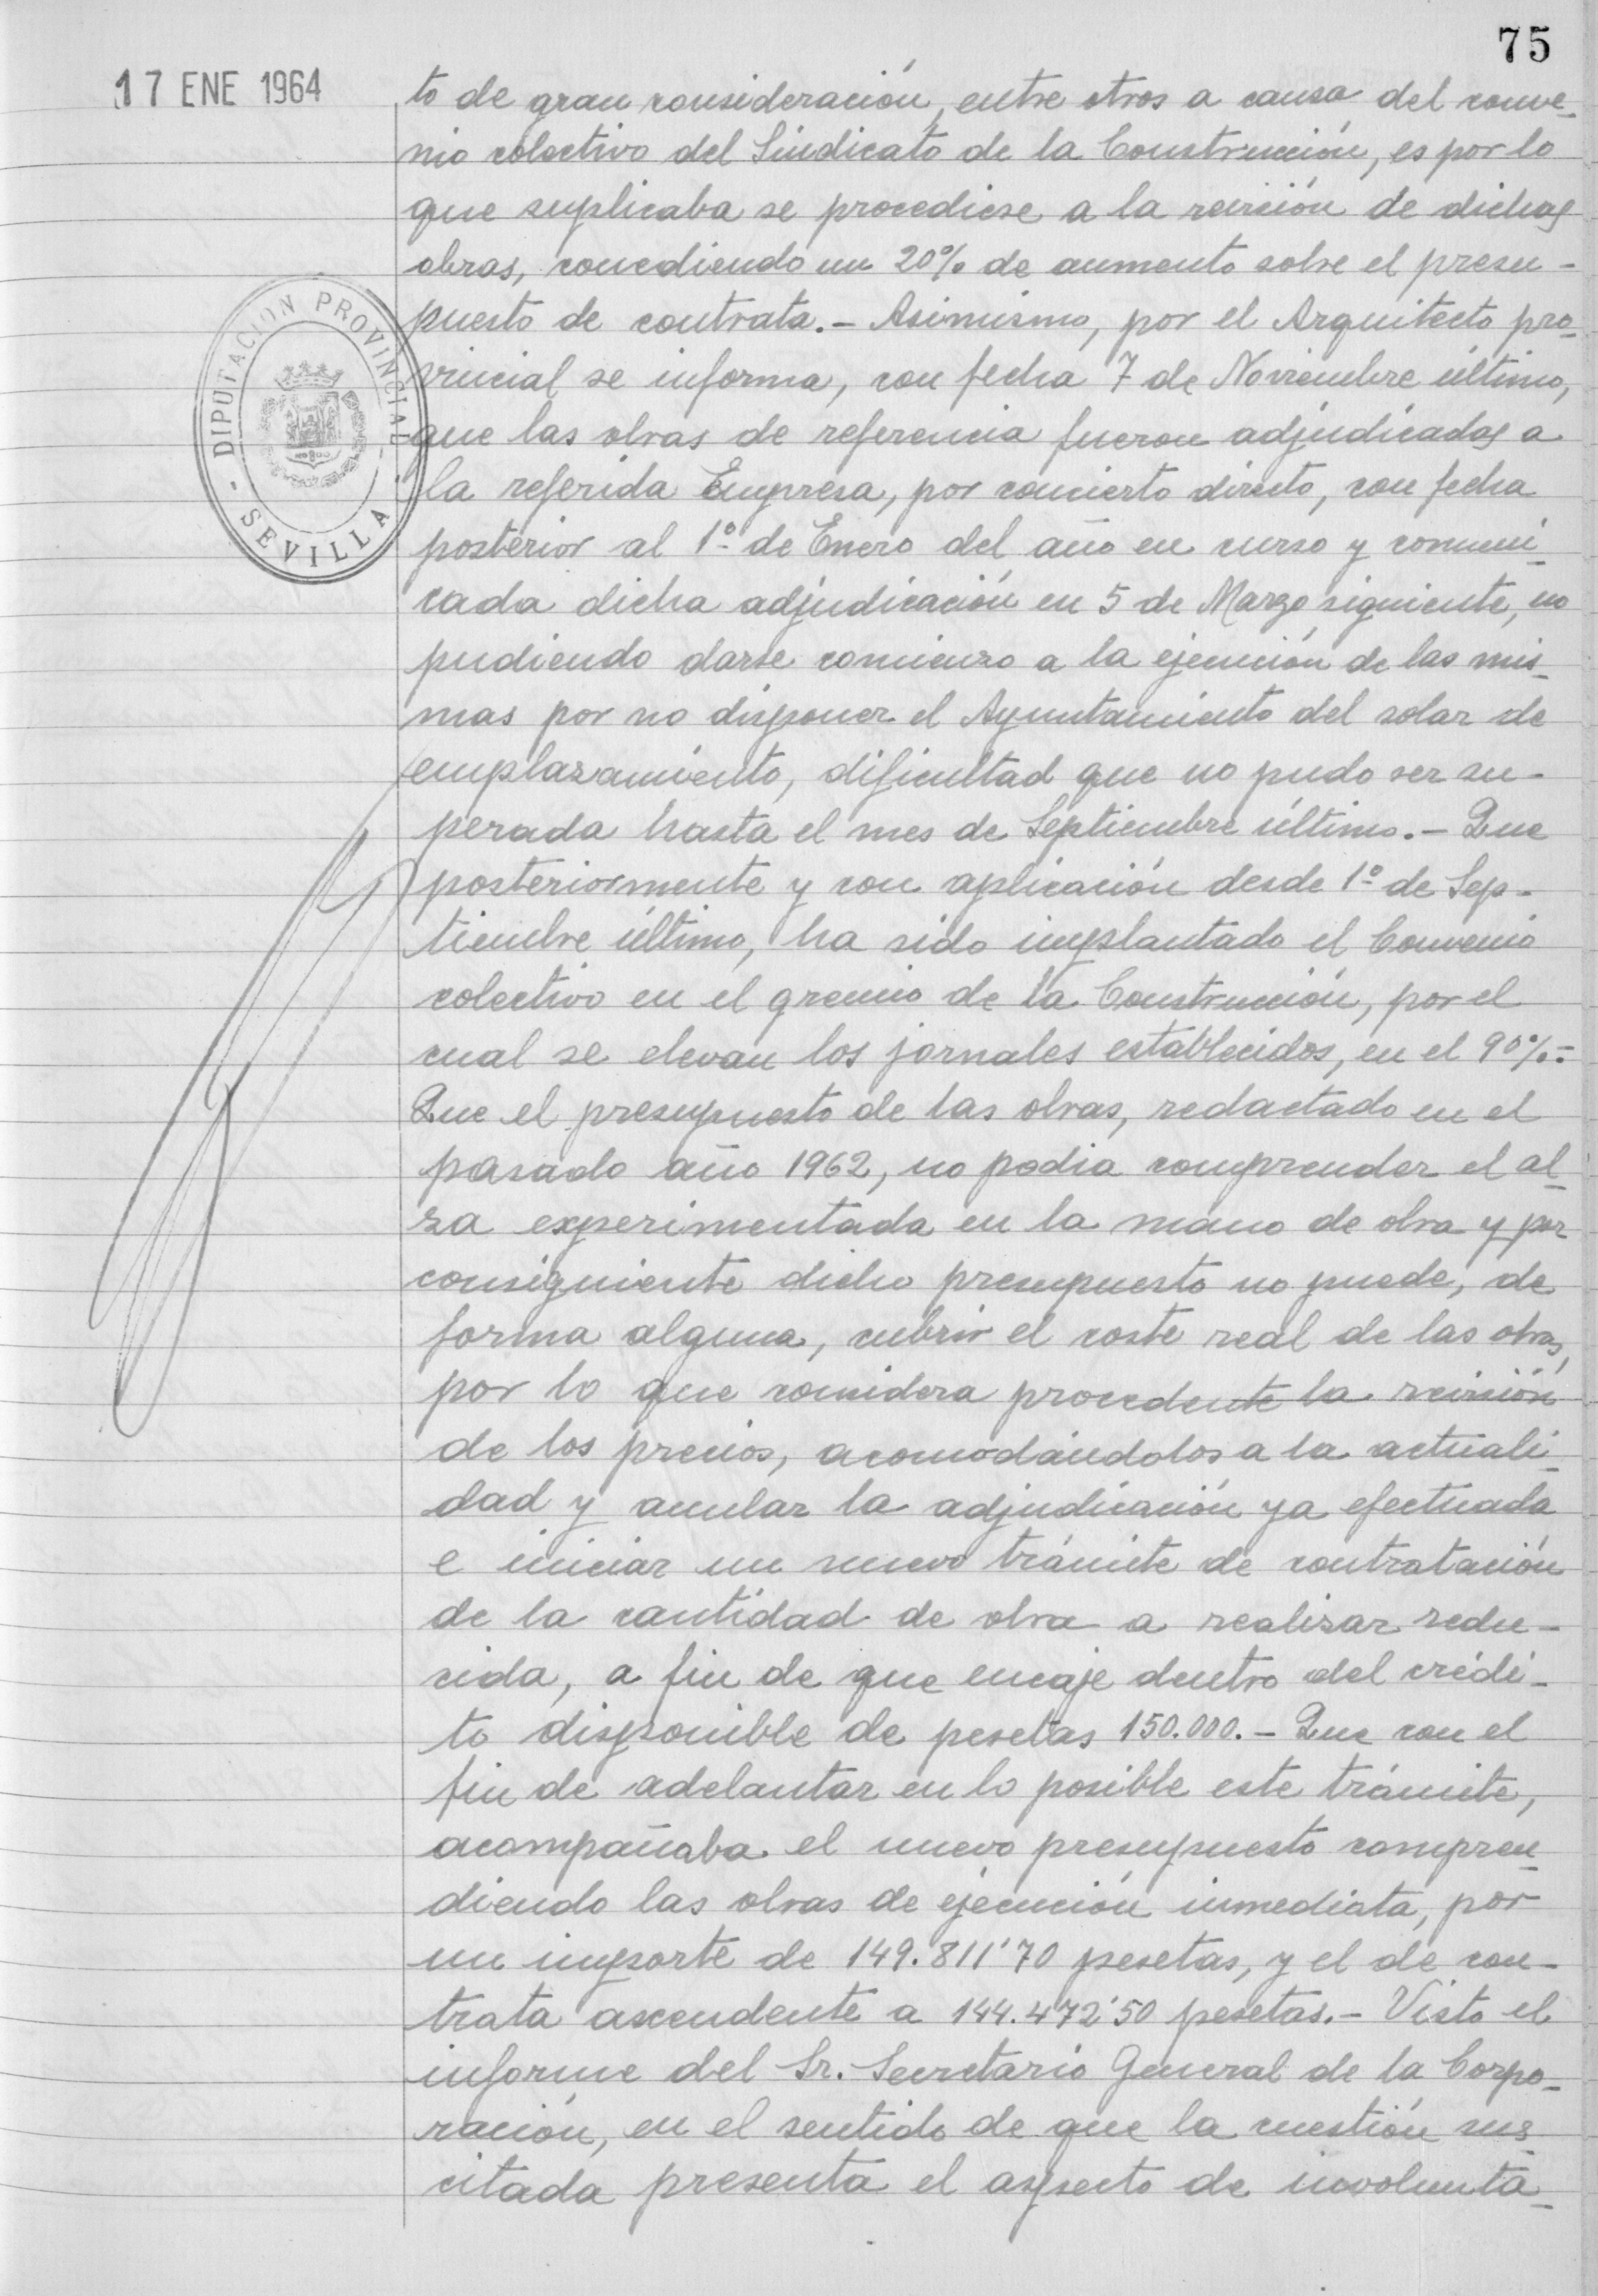 75
17 ENE 1964
to de gran consideración, entre otros a causa del conve-
nio colectivo del Sindicato de la Construcción, es por lo
que suplicaba se procediese a la revisión de dichas
obras, concediendo un 20% de aumento sobre el presu-
puesto de contrata.- Asimismo, por el Arquitecto pro-
vincial se informa, con fecha 7 de Noviembre último,
que las obras de referencia fueron adjudicadas a
la referida Empresa, por concierto directo, con fecha
posterior al 1º de Enero del año en curso y comuni-
cada dicha adjudicación en 5 de Marzo siguiente, no
pudiendo darse comienzo a la ejecución de las mis-
mas por no disponer el Ayuntamiento del solar de
emplazamiento, dificultad que no pudo ser su-
perada hasta el mes de Septiembre último.- Que
posteriormente y con aplicación desde 1º de Sep-
tiembre último, ha sido implantado el Convenio
colectivo en el gremio de la Construcción, por el
cual se elevan los jornales establecidos, en el 90%.-
Que el presupuesto de las obras, redactado en el
pasado año 1962, no podia comprender el al-
za experimentada en la mano de obra y por
consiguiente dicho presupuesto no puede, de
forma alguna, cubrir el coste real de las obras,
por lo que considera procedente la revisión
de los precios, acomodándolos a la actuali-
dad y anular la adjudicación ya efectuada
e iniciar un nuevo trámite de contratación
de la cantidad de obra a realizar redu-
cida, a fin de que encaje dentro del crédi-
to disponible de pesetas 150.000.- Que con el
fin de adelantar en lo posible este trámite,
acompañaba el nuevo presupuesto compren-
diendo las obras de ejecución inmediata, por
un importe de 149.811'70 pesetas, y el de con-
trata ascendente a 144.472'50 pesetas.- Visto el
informe del Sr. Secretario General de la Corpo-
ración, en el sentido de que la cuestión sus-
citada presenta el aspecto de involunta-
DIPUTACION PROVINCIAL
- SEVILLA -